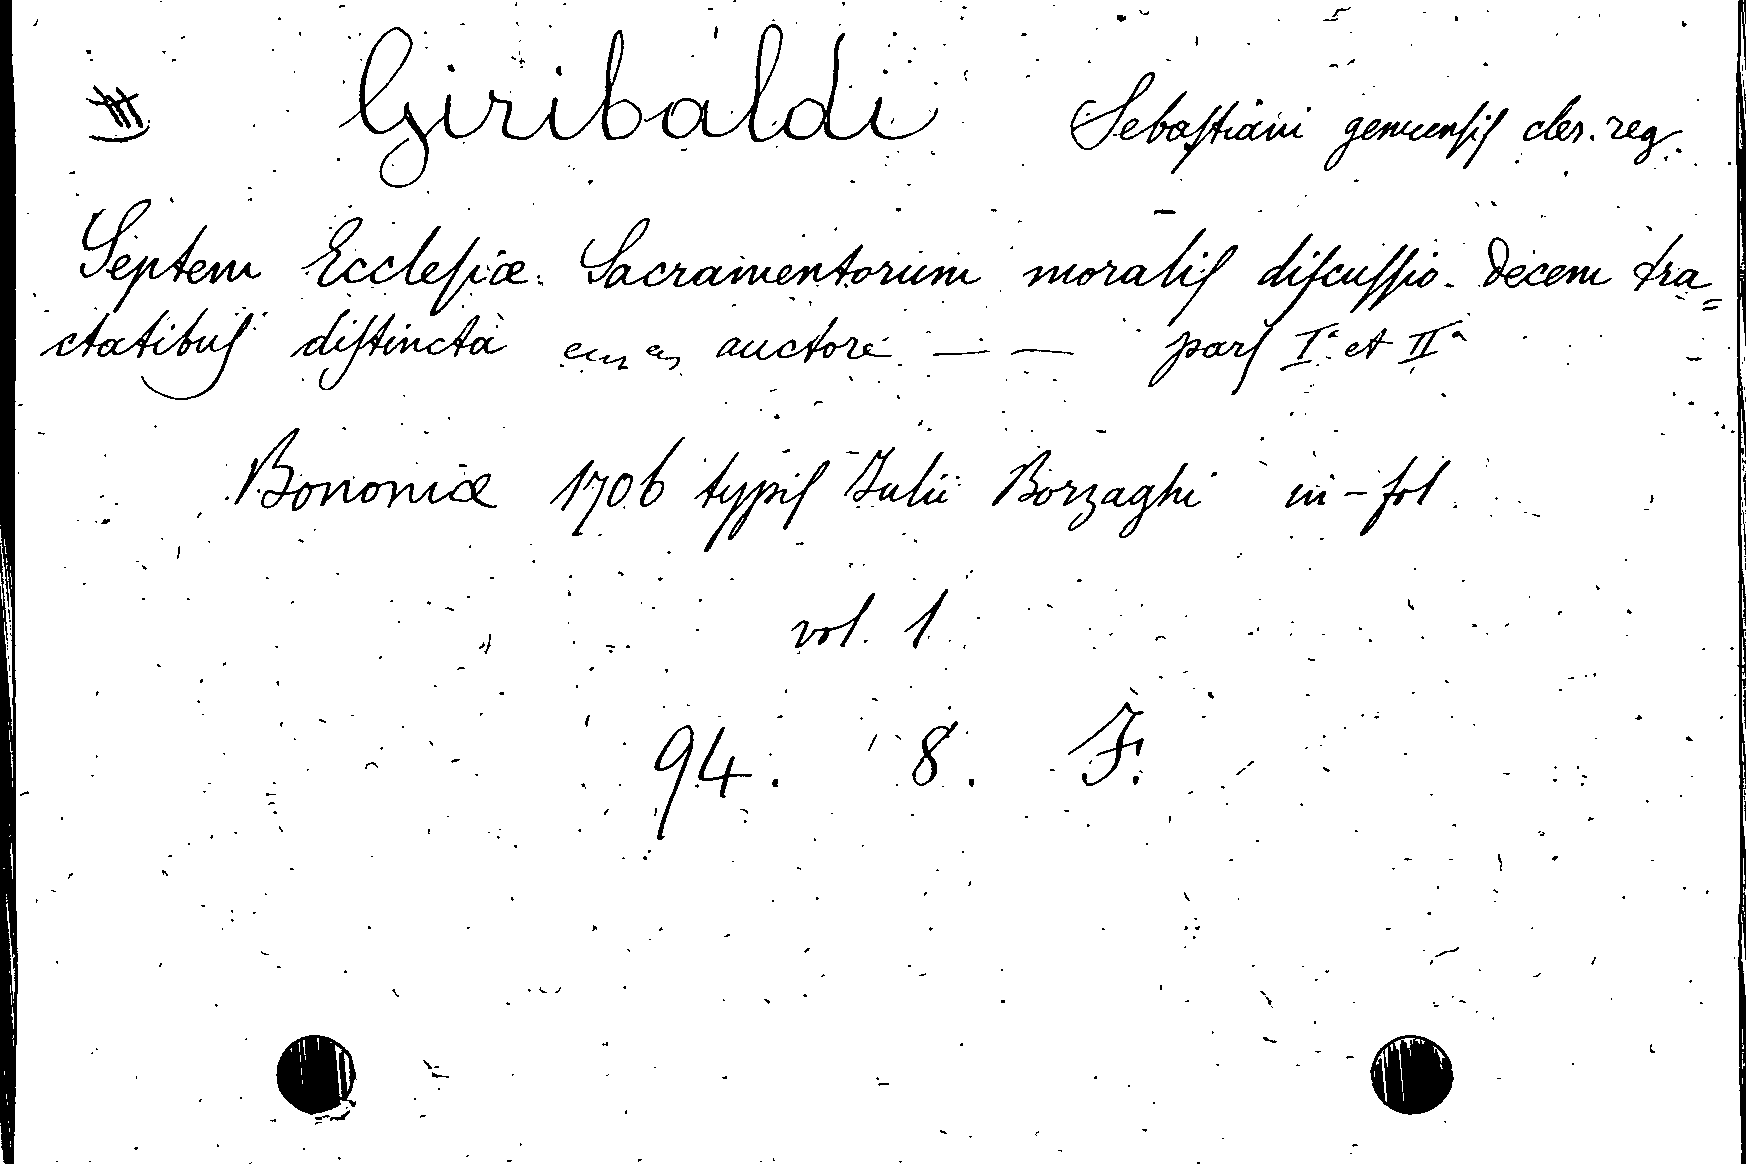 Giribaldi Sebaſtiani genuenſiſ cler. reg.
Septem Eccleſiæ Sacramentorum moraliſ diſcuſſio. Decem tra=
ctatibuſ diſtincta auctore — — parſ Iª et IIª
Bononiæ 1706 typiſ Iulii Borzaghi in-fol.
vol. 1
94. 8. F.